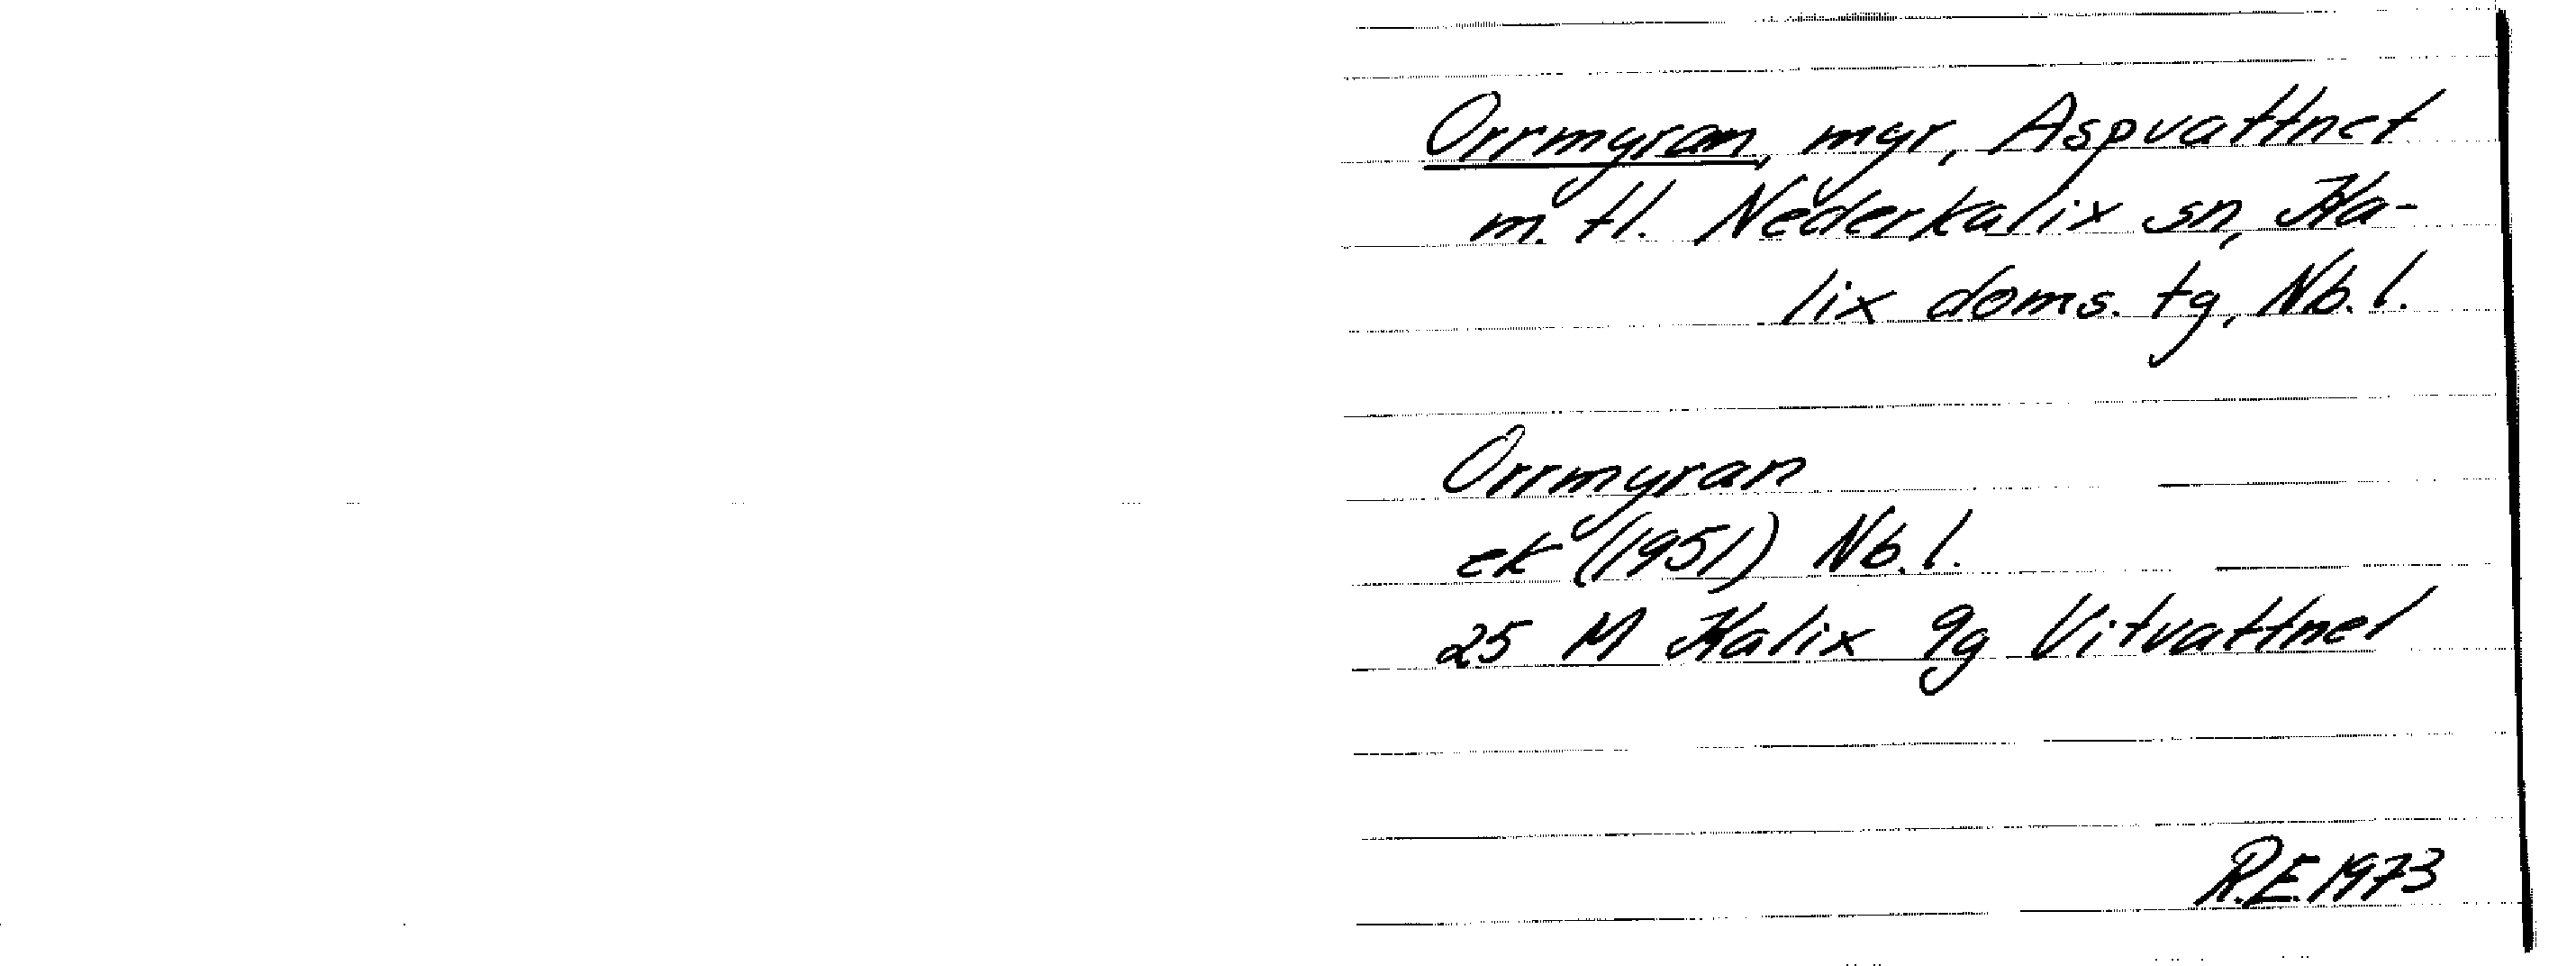 Orrmyran, myr, Aspvattnet
m. fl. Nederkalix sn, Ka-
lix doms. tg, Nb. l.
Orrmyran
ek (1951) Nb. l.
25 M Kalix 9g Vitvattnet
R.E. 1973